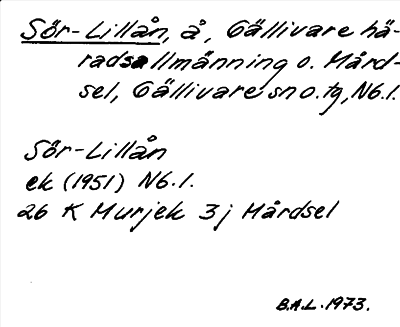 Sör-Lillån, å, Gällivare hä-
radsallmänning o. Mård-
sel, Gällivare sn o. tg, N6.1.
Sör-Lillån
ek (1951) N6.1.
26 K Murjek 3j Mårdsel
B.A.L. 1973.